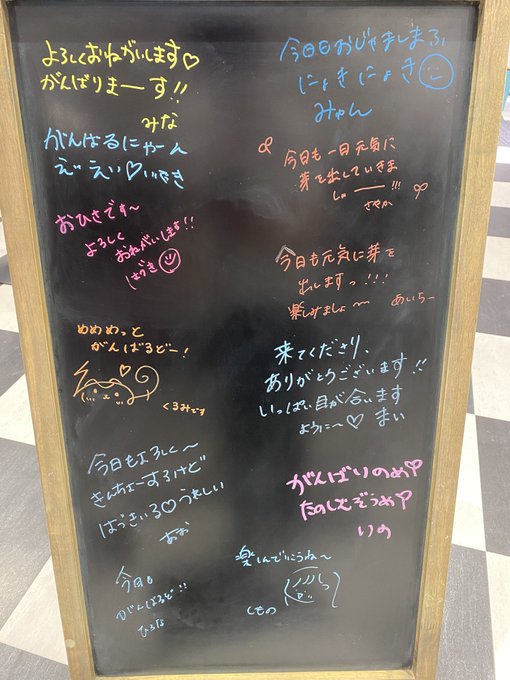 よろしくおねがいします♡
がんばりまーす!!
みな
がんばるにゃーん
えいえい♡
おひさです〜
よろしく
おねがいします!!
はづき
めめめっと
がんばるどー!
くるみです
今日もよろしく〜
きんちょーするけど
はづきいる♡うれしい
あお
今日も
がんばるど!!
ひな
今日もおじゃましまふ
にょきにょき
みゃん
今日も一日元気に
芽を出していきま
しょーーー!!!
さやか
今日も元気に芽を
出しますっ!!!
楽しみましょ〜
あいちー
来てくださり、
ありがとうございます!!
いっぱい目が合います
ように〜♡ まい
がんばりのめ
たのしむぞうめ
りの
楽しんでいこうね〜